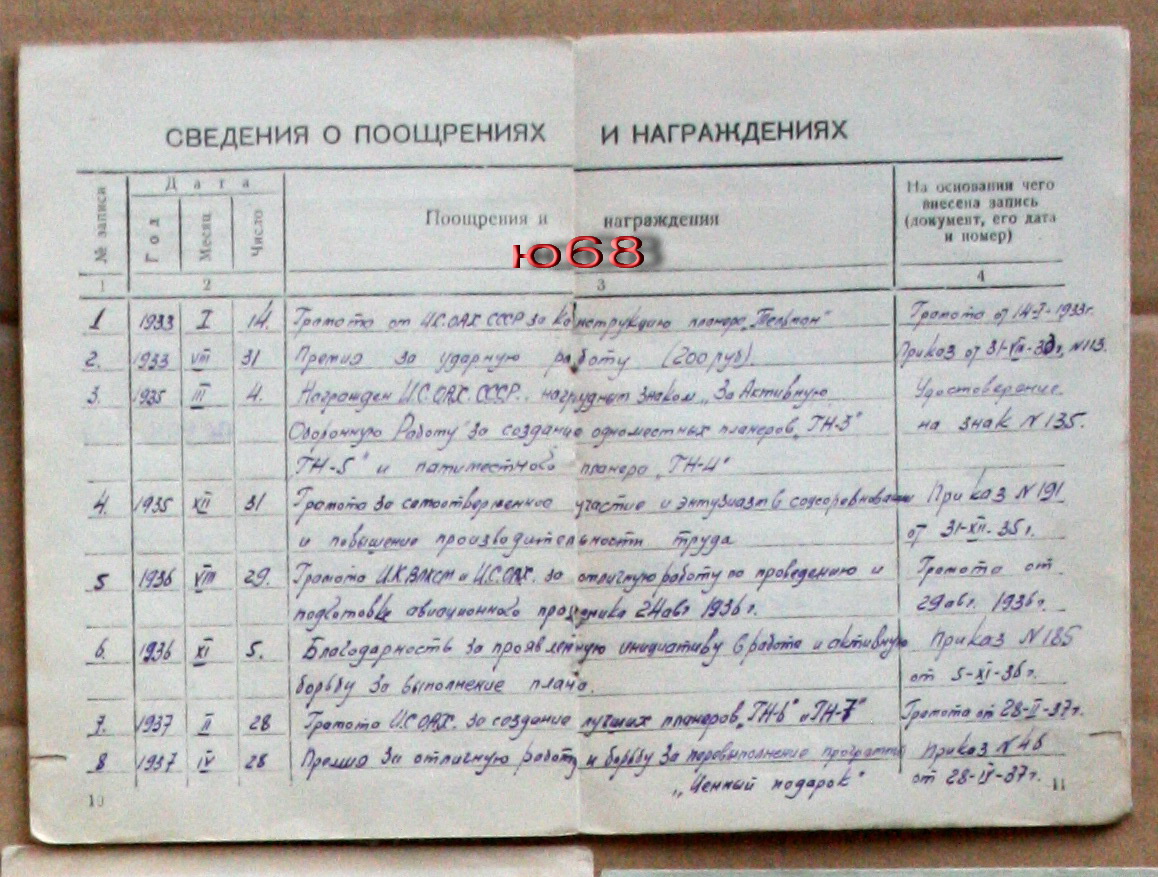 СВЕДЕНИЯ О ПООЩРЕНИЯХ И НАГРАЖДЕНИЯХ
№ записи Дата Год Месяц Число Поощрения и награждения На основании чего внесена запись (документ, его дата и номер)
ю68
1 2 3 4
1 1933 I 14. Грамота от Ц.С.ОАХ СССР за конструкцию планера „Тельман" Грамота от 14-I-1933г.
2. 1933 VIII 31 Премия за ударную работу (200 руб). Приказ от N113.
3. 1935 III 4. Награжден Ц.С.ОАХ.СССР. нагрудным знаком „За Активную Удостоверение
Оборонную Работу" за создание одноместных планеров „ГН-3" на знак N 135.
ГН-5" и пятиместного планера „ГН-4"
4. 1935 XII 31 Грамота за самоотверженное участие и энтузиазм в соцсоревновании Приказ N 191
и повышение производительности труда от 31-XII-35г.
5 1936 VIII 29. Грамота Ц.К.ВЛКСМ и Ц.С.ОАХ. за отличную работу по проведению и Грамота от
подготовке авиационного праздника 24 авг 1936г. 29 авг. 1936г.
6. 1936 XI 5. Благодарность за проявленную инициативу в работе и активную Приказ N 185
борьбу за выполнение плана. от 5-XI-36г.
7. 1937 II 28 Грамота Ц.С.ОАХ. за создание лучших планеров „ГН-6" и ГН-7" Грамота от 28-II-37г.
8 1937 IV 28 Премия за отличную работу и борьбу за перевыполнение программы Приказ N 46
„Ценный подарок" от 28-IV-37г.
10 11